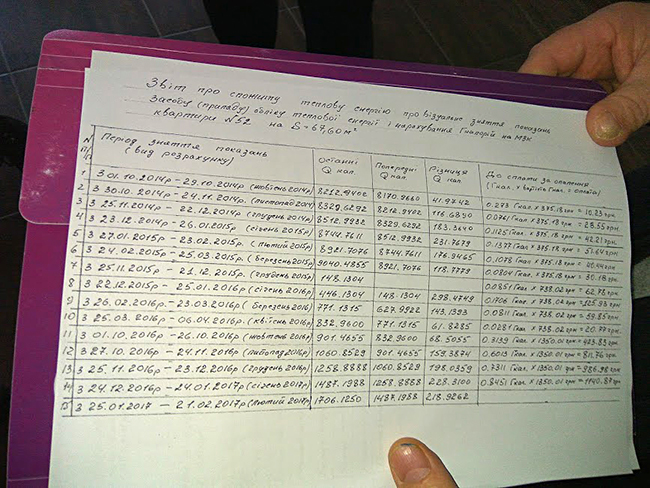 Звіт про спожиту теплову енергію про візуальне зняття показань
засобу (приладу) обліку теплової енергії і нарахування Гкалорій на МЗК
квартири №52 на S=67,60 м²
N п/п Період зняття показань (вид розрахунку) Останні Q кал. Попередні Q кал. Різниця Q кал. До сплати за опалення (Гкал. х вартість Гкал. = оплата)
1 З 01.10.2014р – 29.10.2014р (жовтень 2014р) 8212.9402 8170.9660 41.9742 0.273 Гкал х 375.18 грн = 10.23 грн
2 З 30.10.2014р – 24.11.2014р (листопад 2014р) 8329,6292 8212,9402 116.6890 0.0761 Гкал х 375.18 грн = 28.55 грн
3 З 25.11.2014р – 22.12.2014р (грудень 2014р) 8512,9932 8329.6292 183.3640 0.1125 Гкал х 375.18 грн = 42.21 грн
4 З 23.12.2014р – 26.01.2015р (січень 2015р) 8744.7611 8512,9932 231.7679 0.1377 Гкал х 375.18 грн
5 З 27.01.2015р – 23.02.2015р (лютий 2015р) 8921.7076 8744.7611 176.9465 0.1078 Гкал х 375.18 грн
6 З 24.02.2015р – 25.03.2015р (березень 2015р) 9040.4855 8921.7076 118.7779 0.0804 Гкал х 375.18 грн = 30.18 грн
7 З 25.11.2015р – 21.12.2015р (грудень 2015р) 148.1304 0.0851 Гкал х 738.02 грн = 62.78 грн
8 З 22.12.2015р – 25.01.2016р (січень 2016р) 446.1304 148.1304 298.4749 0.1706 Гкал х 738.02 грн = 125.93 грн
9 З 26.02.2016р – 23.03.2016р (березень 2016) 771.1315 627.9922 143.1393 0.0811 Гкал х 738.02 грн = 59.85 грн
10 З 25.03.2016р – 06.04.2016р (квітень 2016р) 832,9600 771.1315 61.8285 0.0281 Гкал х 738.02 грн = 20.77 грн
11 З 01.10.2016р – 26.10.2016р (жовтень 2016р) 901.4655 832,9600 68.5055 0.3139 Гкал х 1350.01 грн = 423.83 грн
12 З 27.10.2016р – 24.11.2016р (листопад 2016р) 1060.8529 901.4655 159.3874 0.6013 Гкал х 1350.01 грн = 811.76 грн
13 З 25.11.2016р – 23.12.2016р (грудень 2016р) 1258.8888 1060.8529 198.0359 0.7311 Гкал х 1350.01 грн = 986.98 грн
14 З 24.12.2016р – 24.01.2017р (січень 2017р) 1487.1988 1258.8888 228.3100 0.8451 Гкал х 1350.01 грн = 1140.89 грн
15 З 25.01.2017 – 21.02.2017р (лютий 2017р) 1706.1250 1487.1988 218.9262